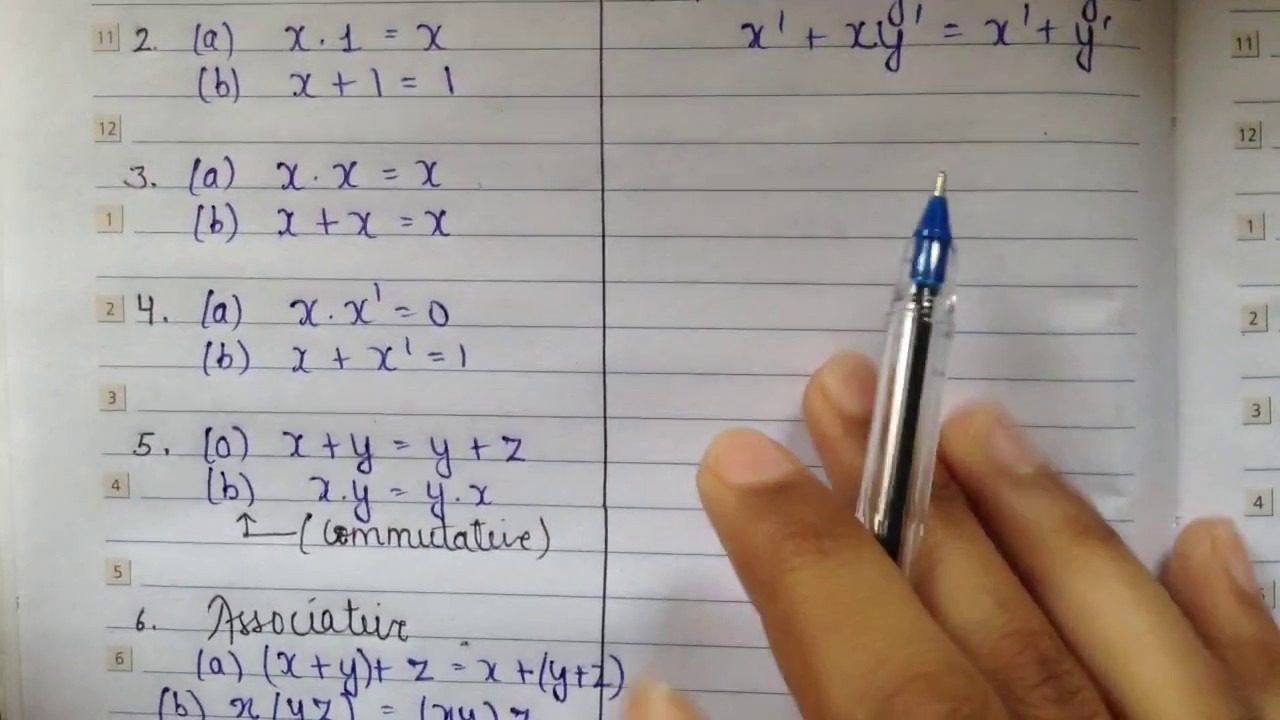 11 2. (a) x . 1 = x
(b) x + 1 = 1
12
3. (a) x . x = x
1 (b) x + x = x
2 4. (a) x . x' = 0
(b) x + x' = 1
3
5. (a) x + y = y + z
4 (b) x.y = y.x
(Commutative)
5
6. Associative
6 (a) (x+y)+ z = x +(y+z)
(b) x(yz) = (xy)z
x' + xy' = x' + y'
11
12
1
2
3
4